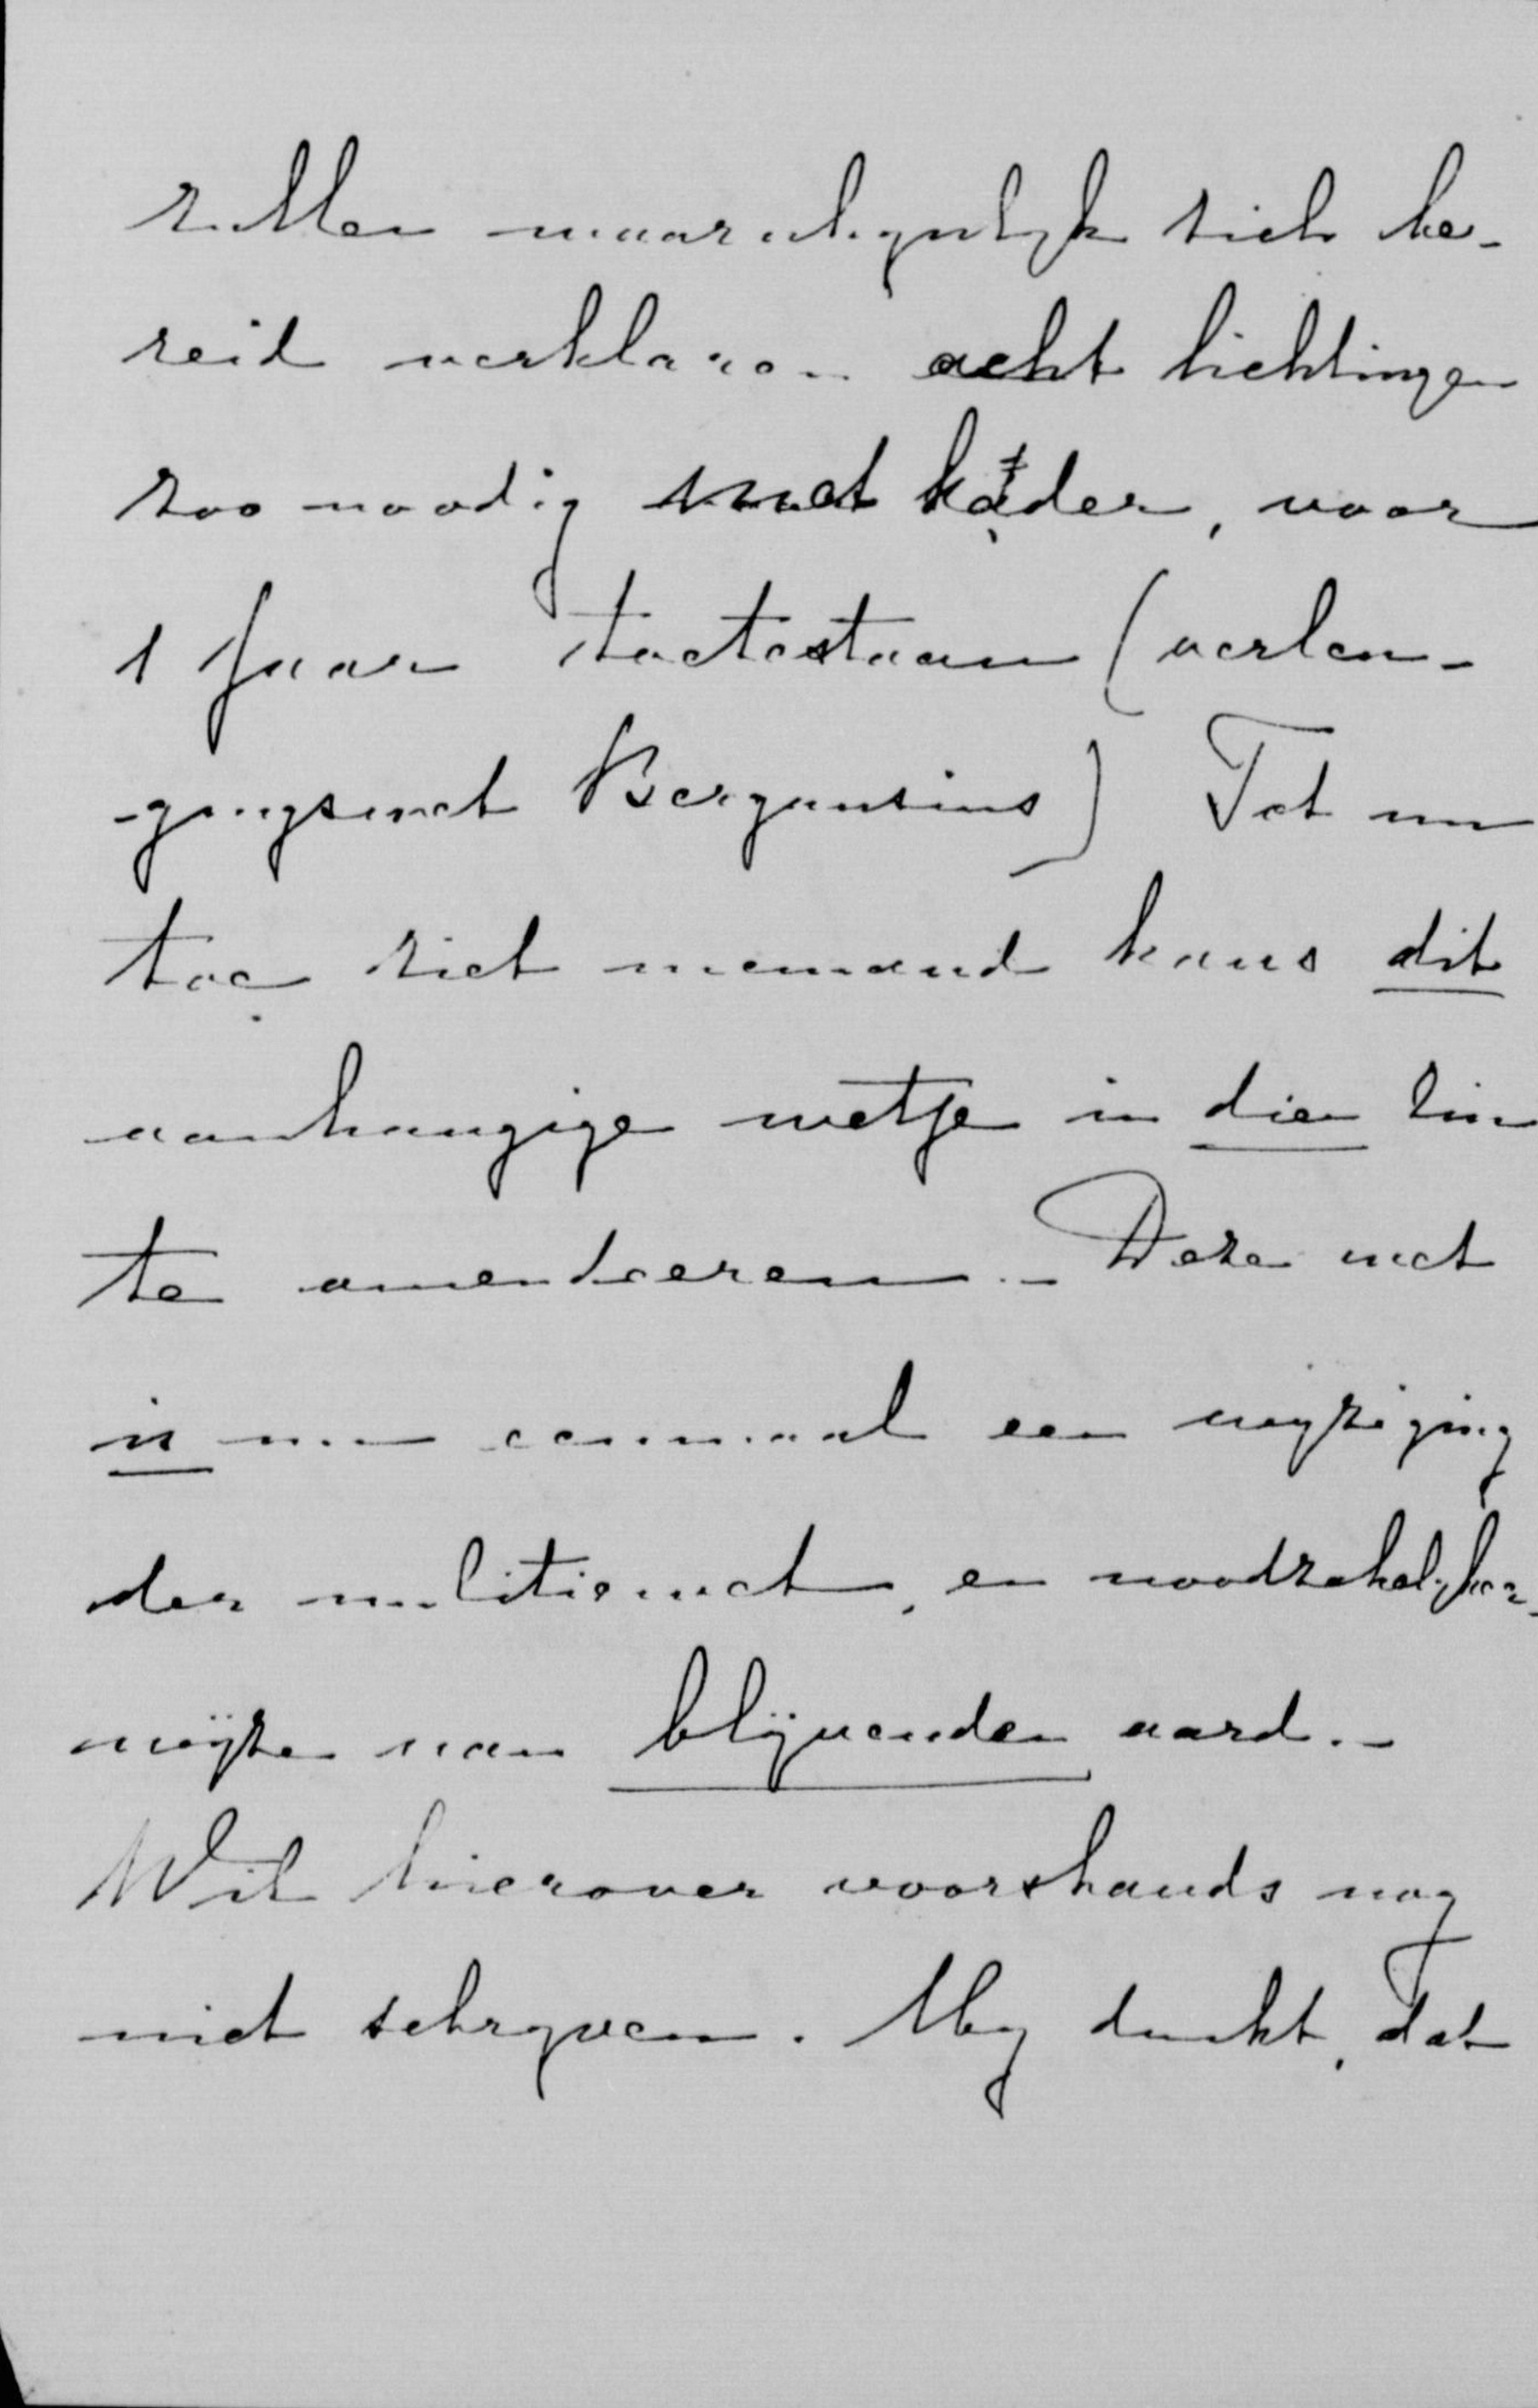 zullen waarschynlyk zich be-
reid verklaren acht lichtingen
zoo noodig met kader, voor
1 jaar toetestaan (verlen-
-gingswet Bergansius) Tot nu
toe ziet niemand kans dit
aanhangige wetje in dien zin
te amendeeren. - Deze wet
is nu eenmaal een wyziging
der militiewet, en noodzakelyker-
wijze van blijvenden aard. -
Wil hierover voorshands nog
niet schryven. My dunkt, dat